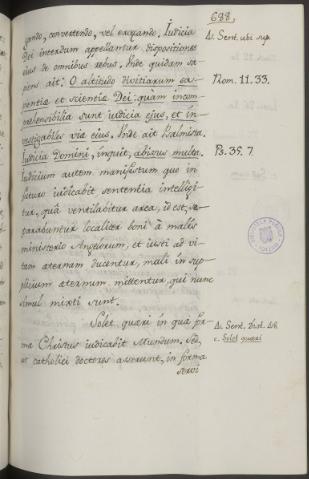 688.
gando, convertendo, vel excæcando. Iudicia
Dei interdum appellantur dispositiones
eius de omnibus rebus. Vnde quidam sa-
piens ait: O altitudo divitiarum sa-
pientiæ et scientiæ Dei: quàm incom-
prehensibilia sunt iudicia ejus, et in-
vestigabiles viæ eius. Vnde ait Psalmista.
Iudicia Domini, inquit, abissus multa.
Iudicium autem manifestum quo in
futuro iudicabit sententia intelligi-
tur, quâ ventilabitur area, id est, se-
parabuntur localiter boni à malis
ministerio Angelorum, et iusti ad vi-
tam æternam ducentur, mali in sup-
plicium æternum mittentur, qui nunc
simul mixti sunt.
Solet quæri in qua for-
ma Christus iudicabit Mundum. Sed,
ut catholici doctores asserunt, in forma
servi
4. Sent. ubi sup.
Rom. 11. 33.
Ps. 35. 7.
4. Sent. Dist. 48.
c. Solet quæri